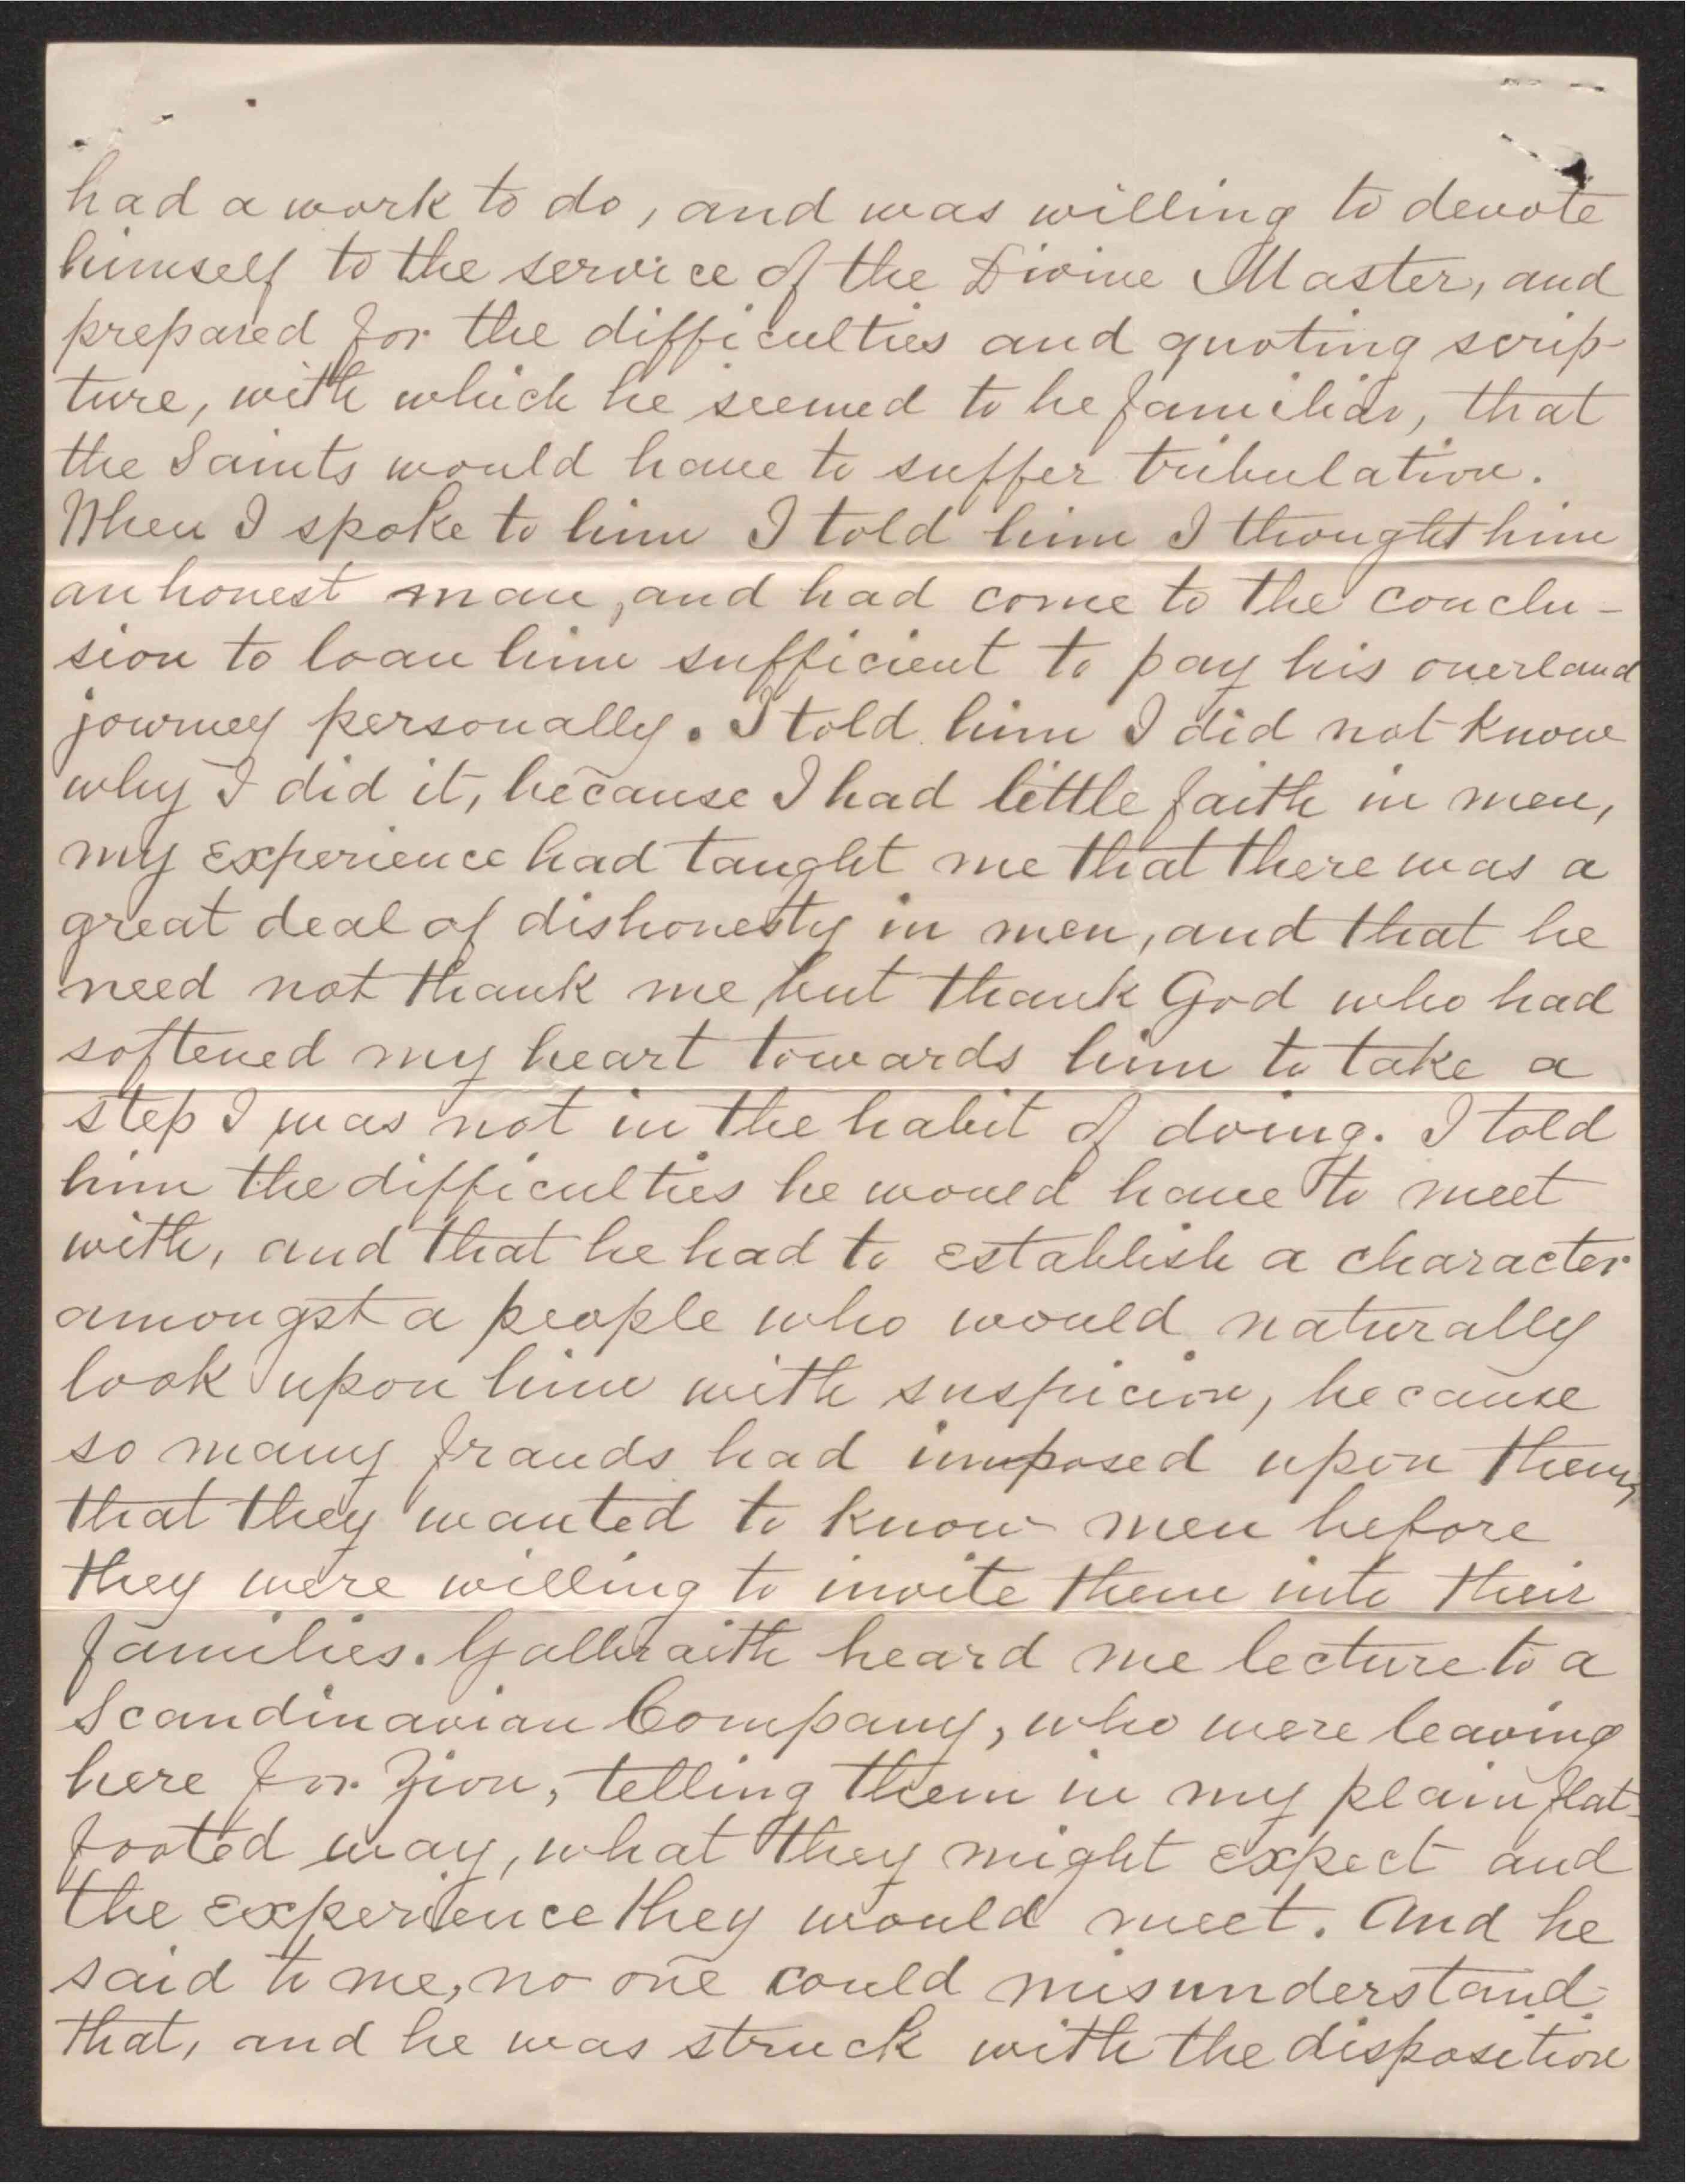 had a work to do, and was willing to devote
himself to the service of the Divine Master, and
prepared for the difficulties and quoting scrip-
ture, with which he seemed to be familiar, that
the Saints would have to suffer tribulation.
When I spoke to him I told him I thought him
an honest man, and had come to the conclu-
sion to loan him sufficient to pay his overland
journey personally. I told him I did not know
why I did it, because I had little faith in men,
my experience had taught me that there was a
great deal of dishonesty in men, and that he
need not thank me, but thank God who had
softened my heart towards him to take a
step I was not in the habit of doing. I told
him the difficulties he would have to meet
with, and that he had to establish a character
amongst a people who would naturally
look upon him with suspicion, because
so many frauds had imposed upon them,
that they wanted to know men before
they were willing to invite them into their
families. Galbraith heard me lecture to a
Scandinavian Company, who were leaving
here for Zion, telling them in my plain flat-
footed way, what they might expect and
the experience they would meet. And he
said to me, no one could misunderstand
that, and he was struck with the disposition